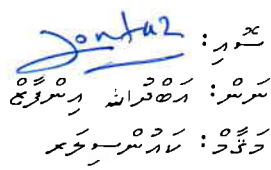 ސޮއި:
ނަން: އަބްދުﷲ އިންފާޒް
މަޤާމް: ކައުންސިލަރ